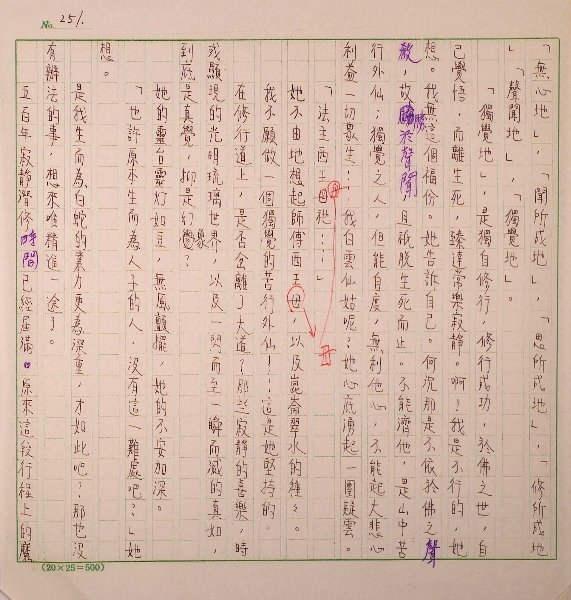 No. 251.
「無心地」,「聞所成地」,「思所成地」,「修所成地
」,「聲聞地」,「獨覺地」。
「獨覺地」,是獨自修行,修行成功,於佛之世,自
己覺悟,而離生死,臻達常樂寂靜。啊!我是不行的,她
想。我無這個福份。她告訴自己。何況那是不依於佛之聲
教,故勝於聲聞,且祇脫生死而止。不能濟他,是山中苦
行外仙;獨覺之人,但能自度,無利他心,不能起大悲心
利益一切衆生!我白雲仙姑呢?她心底湧起一團疑雲。
「法主西王母祂……」
她不由地想起師傅西王母,以及崑崙翠水的種々。
我不願做一個獨覺的苦行外仙!……這是她堅持的。
在修行道上,是否會離了大道?那些寂靜的喜樂,時
或顯現的光明琉璃世界,以及一閃而至一瞬而滅的真如,
到底是真覺,抑是幻象?
她的靈台靈灯如豆,無風顫擺,她的不安加深。
「也許原本生而為人子的人,沒有這一難處吧?」她
想。
是我生而為白蛇的業力更為深重,才如此吧?那也沒
有辦法的事,想來唯精進一途了。
五百年寂靜潛修時間已經屆滿。原來這段行程上的魔
(20×25=500)
母